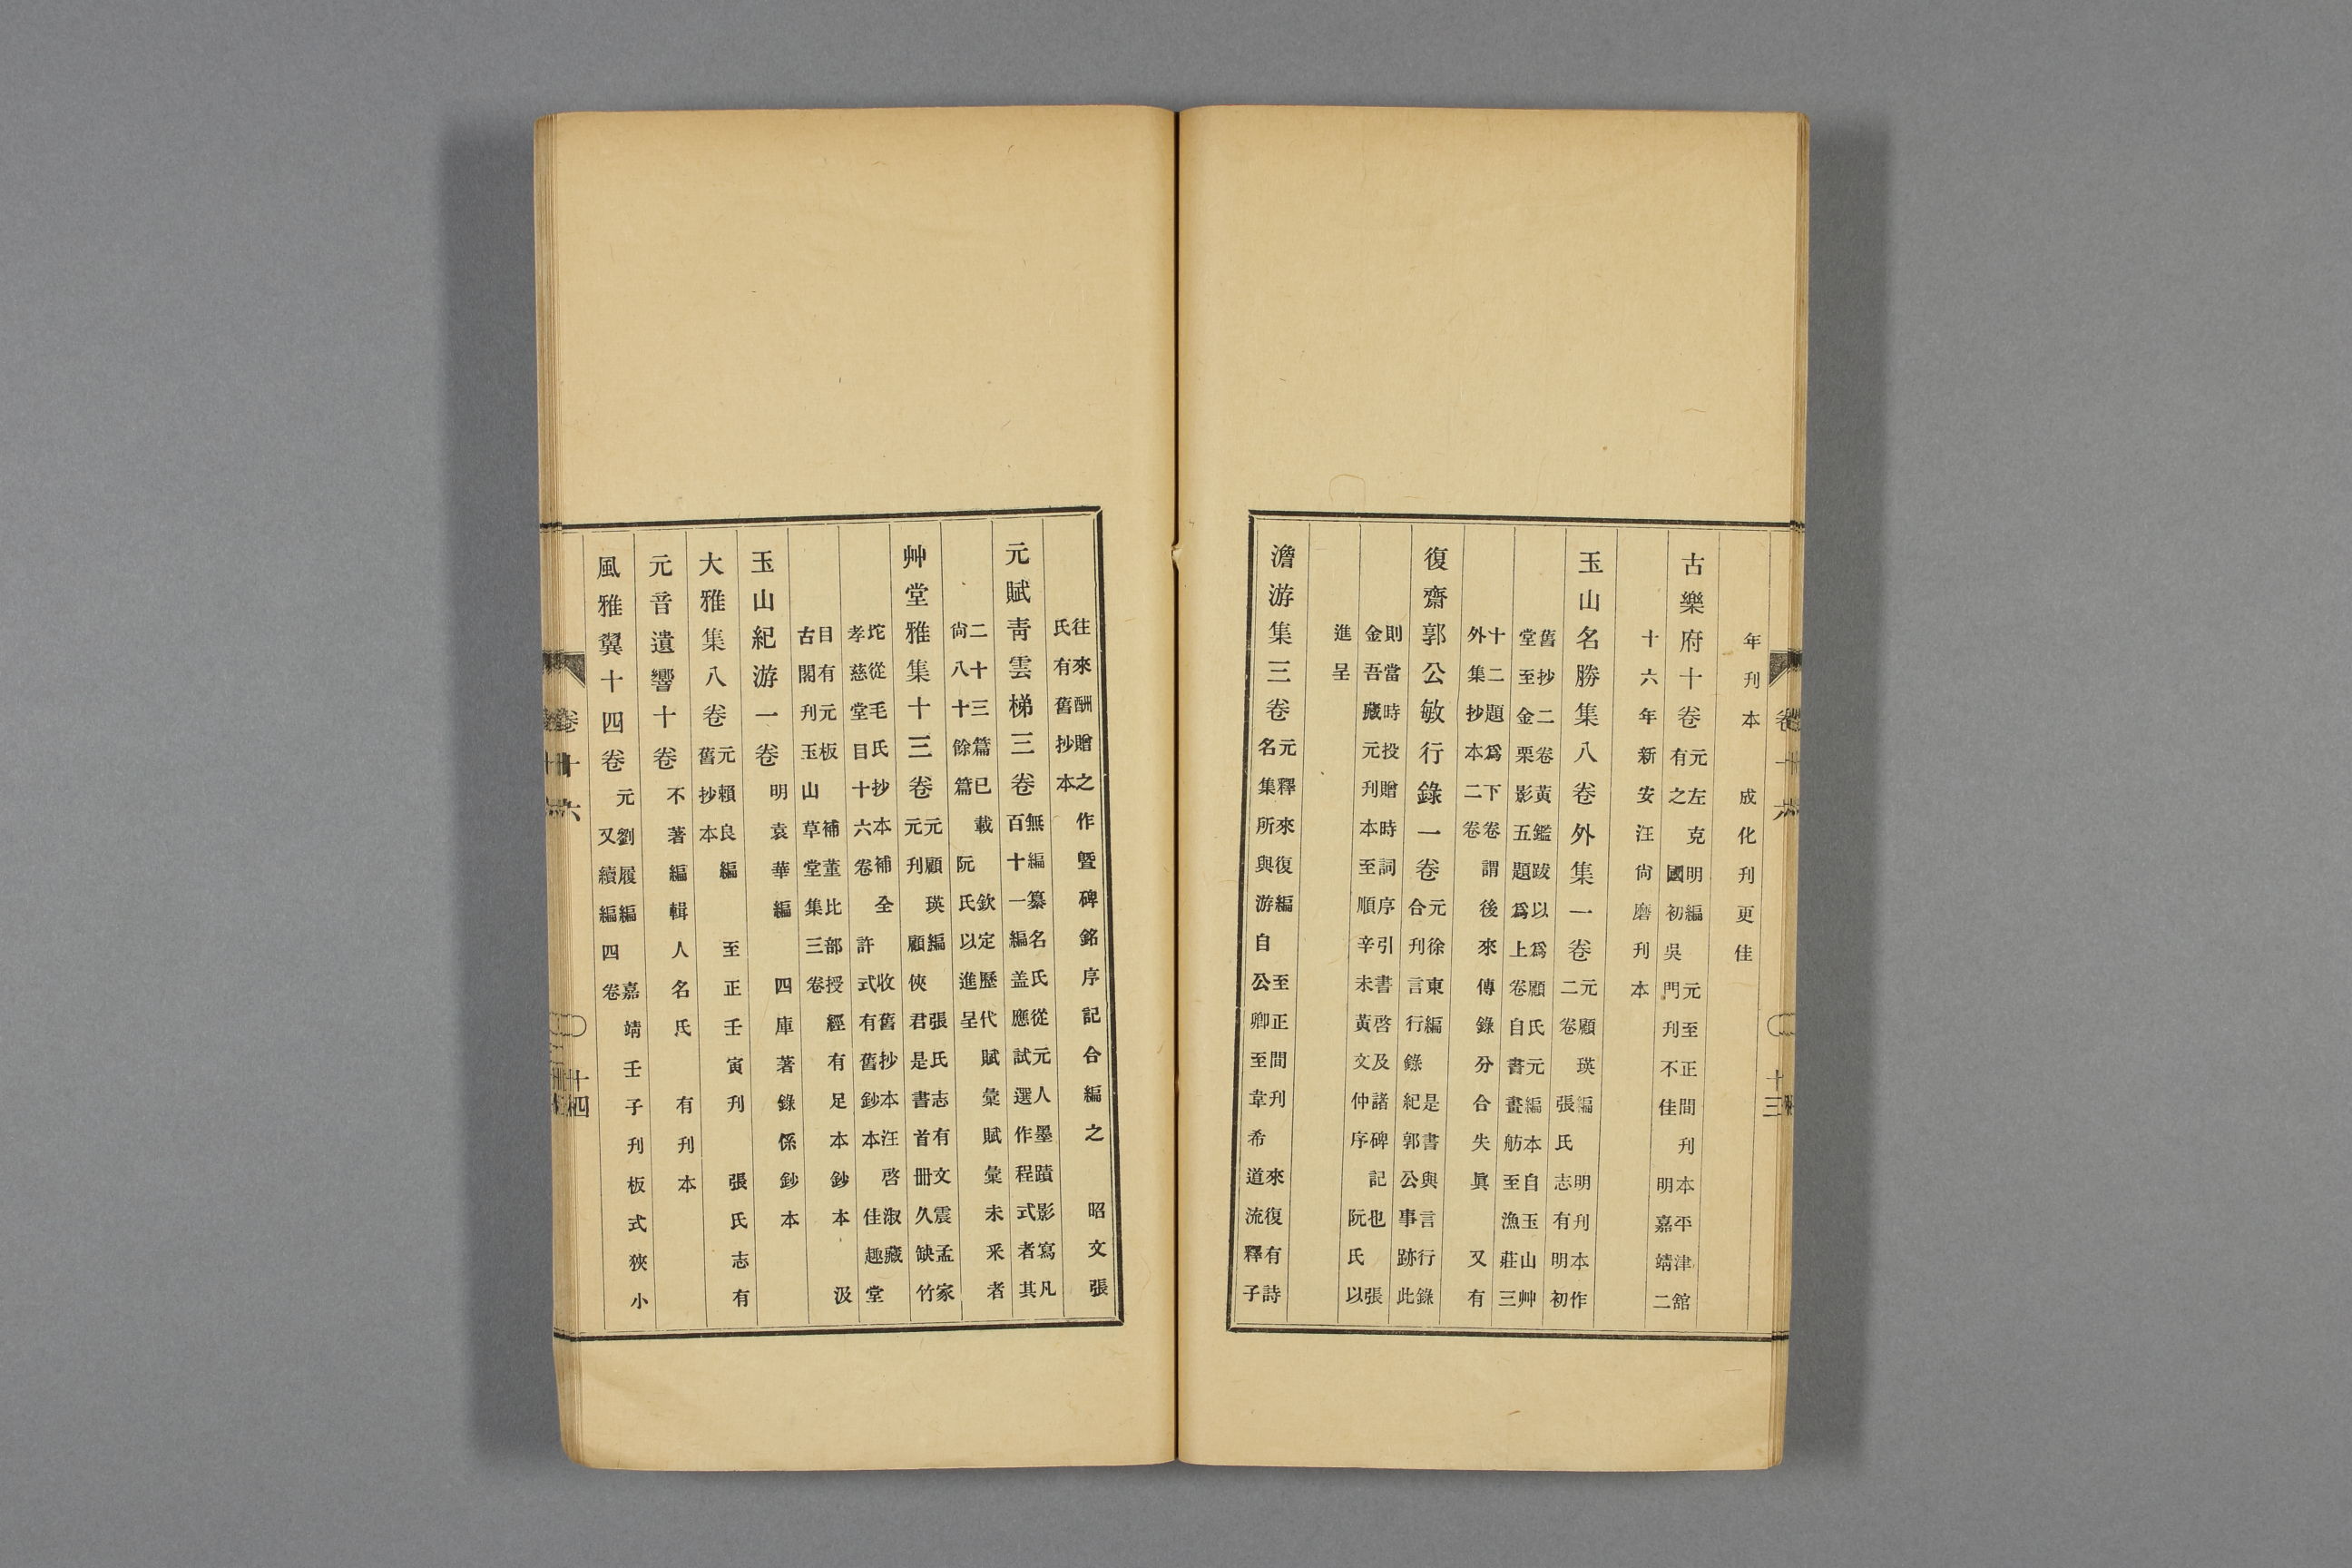 年刊本 成化刊更佳
古樂府十卷
元左克明編 元至正間刊本平津館
有之 國初吳門刊不佳 明嘉靖二
十六年新安汪尙磨刊本
玉山名勝集八卷外集一卷
元顧瑛編 明刊本作
二卷 張氏志有明初
舊抄二卷黃鑑跋以爲顧氏元編本自玉山艸
堂至金栗影五題爲上卷自書畫舫至漁莊三
十二題爲下卷
外集抄本二卷
謂後來傳錄分合失眞 又有
復齋郭公敏行錄一卷
元徐東編 是書與言行錄
合刊言行錄紀郭公事跡此
則當時投贈時詞序引書啓及諸碑記也 張
金吾藏元刊本至順辛未黃文仲序 阮氏以
進呈
澹游集三卷
元釋來復編 至正間刊 來復有詩
名集所與游自公卿至韋希道流釋子
卷十六
十三
往來酬贈之作曁碑銘序記合編之 昭文張
氏有舊抄本
元賦靑雲梯三卷
無編纂名氏從元人墨蹟影寫凡
百十一編盖應試選作程式者其
二十三篇已載 欽定歷代賦彙賦彙未釆者
尙八十餘篇 阮氏以進呈
艸堂雅集十三卷
元顧瑛編 張氏志有文震孟家
元刊 顧俠君是書首册久缺竹
坨從毛氏抄本補全 收舊抄本汪啓淑藏
孝慈堂目十六卷 許式有舊鈔本 佳趣堂
目有元板 補董比部授經有足本鈔本 汲
古閣刊玉山草堂集三卷
玉山紀游一卷 明袁華編 四庫著錄係鈔本
大雅集八卷
元賴良編 至正壬寅刊 張氏志有
舊抄本
元音遺響十卷 不著編輯人名氏 有刊本
風雅翼十四卷
元劉履編 嘉靖壬子刊板式狹小
又續編四卷
卷十六
十四